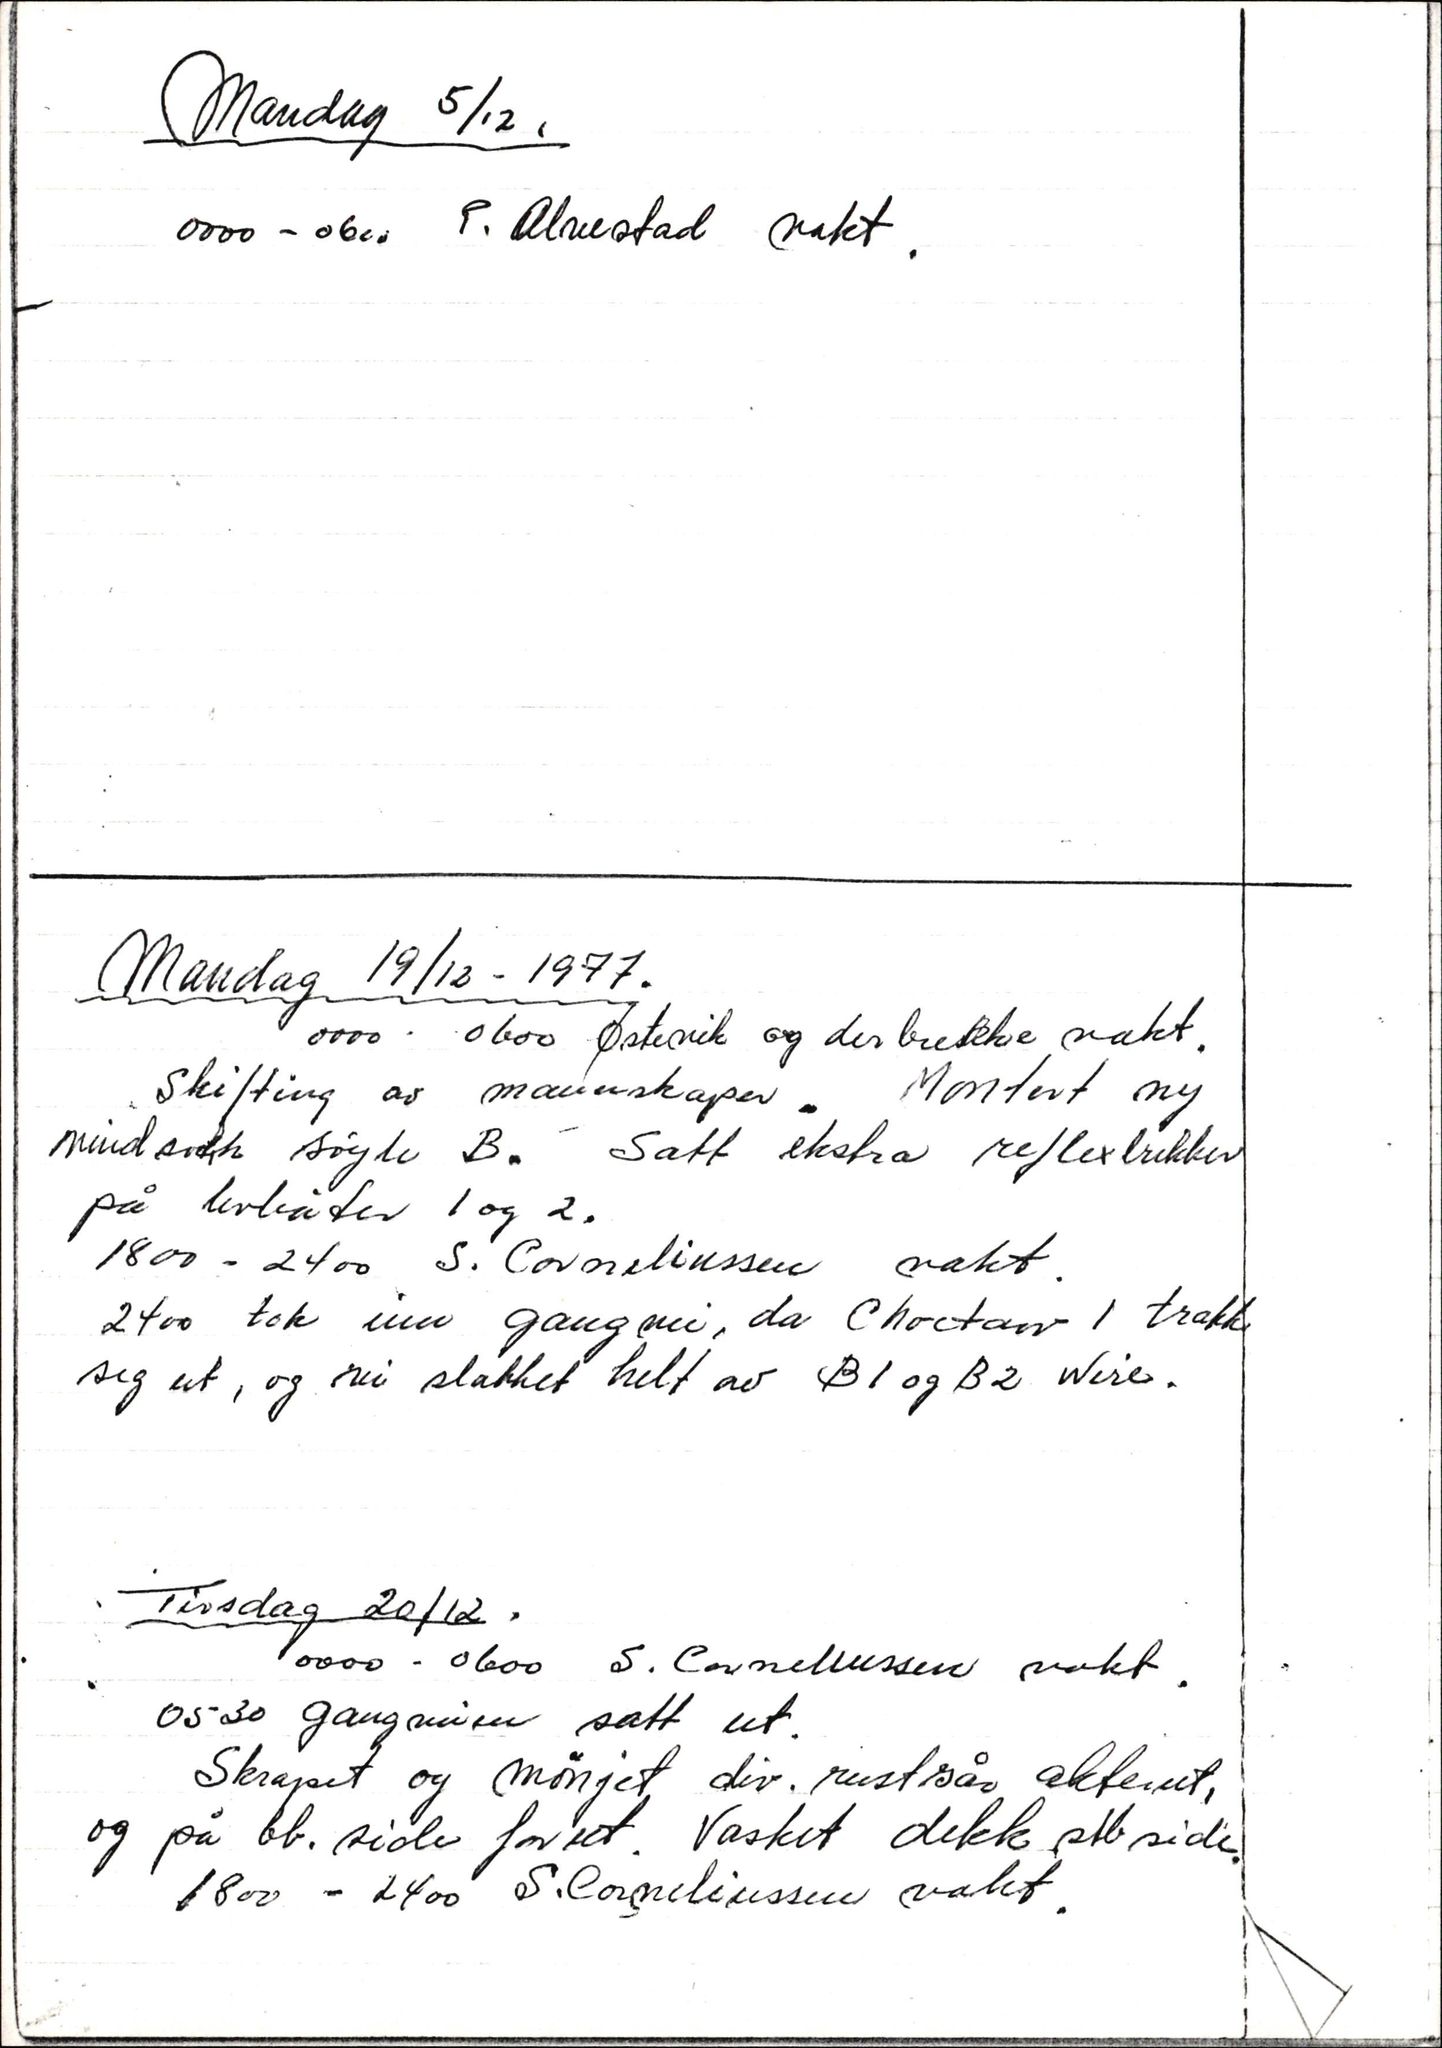 Mandag 5/12.
0000 - 0600 P. Alvestad vakt.
Mandag 19/12 - 1977.
0000 - 0600 Østevik og der bukke vakt.
Skifting av mannskaper. Montert ny
vindsekk søyle B. Satt ekstra reflexbrikker
på livbåter 1 og 2.
1800 - 2400 S. Corneliussen vakt.
2400 tok inn gangvei, da Choctaw 1 trakk
seg ut, og vi slakket helt av B1 og B2 wire.
Tirsdag 20/12.
0000 - 0600 S. Corneliussen vakt.
0530 gangveien satt ut.
Skrapet og mönjet div. rustsår akterut,
og på bb. side forut. Vasket dekk stb side.
1800 - 2400 S. Corneliussen vakt.